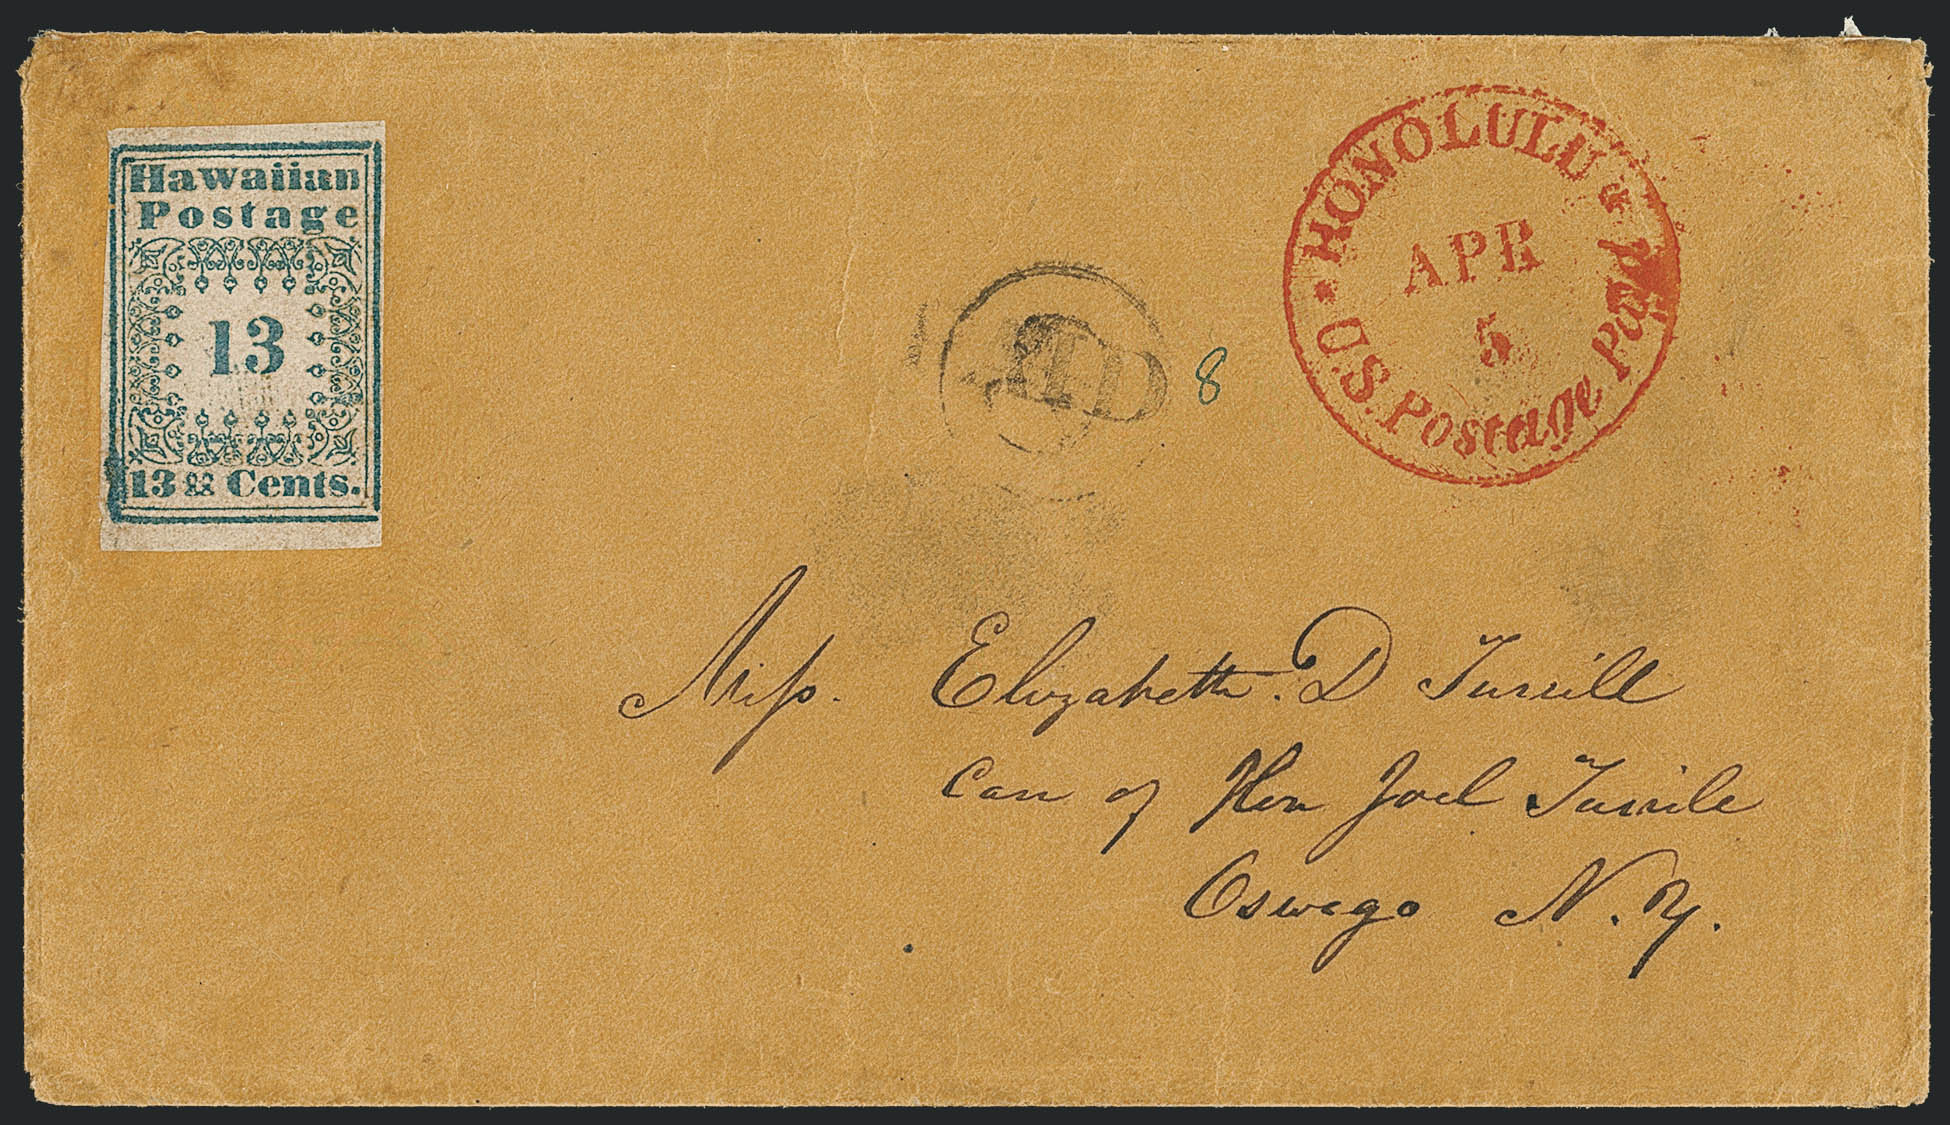 Hawaiian
Postage
13
13 Cents.
8
HONOLULU
APR
5
U.S. Postage Paid
Miss. Elizabeth. D Turrill
Care of Hon Joel Turrile
Oswego N.Y.